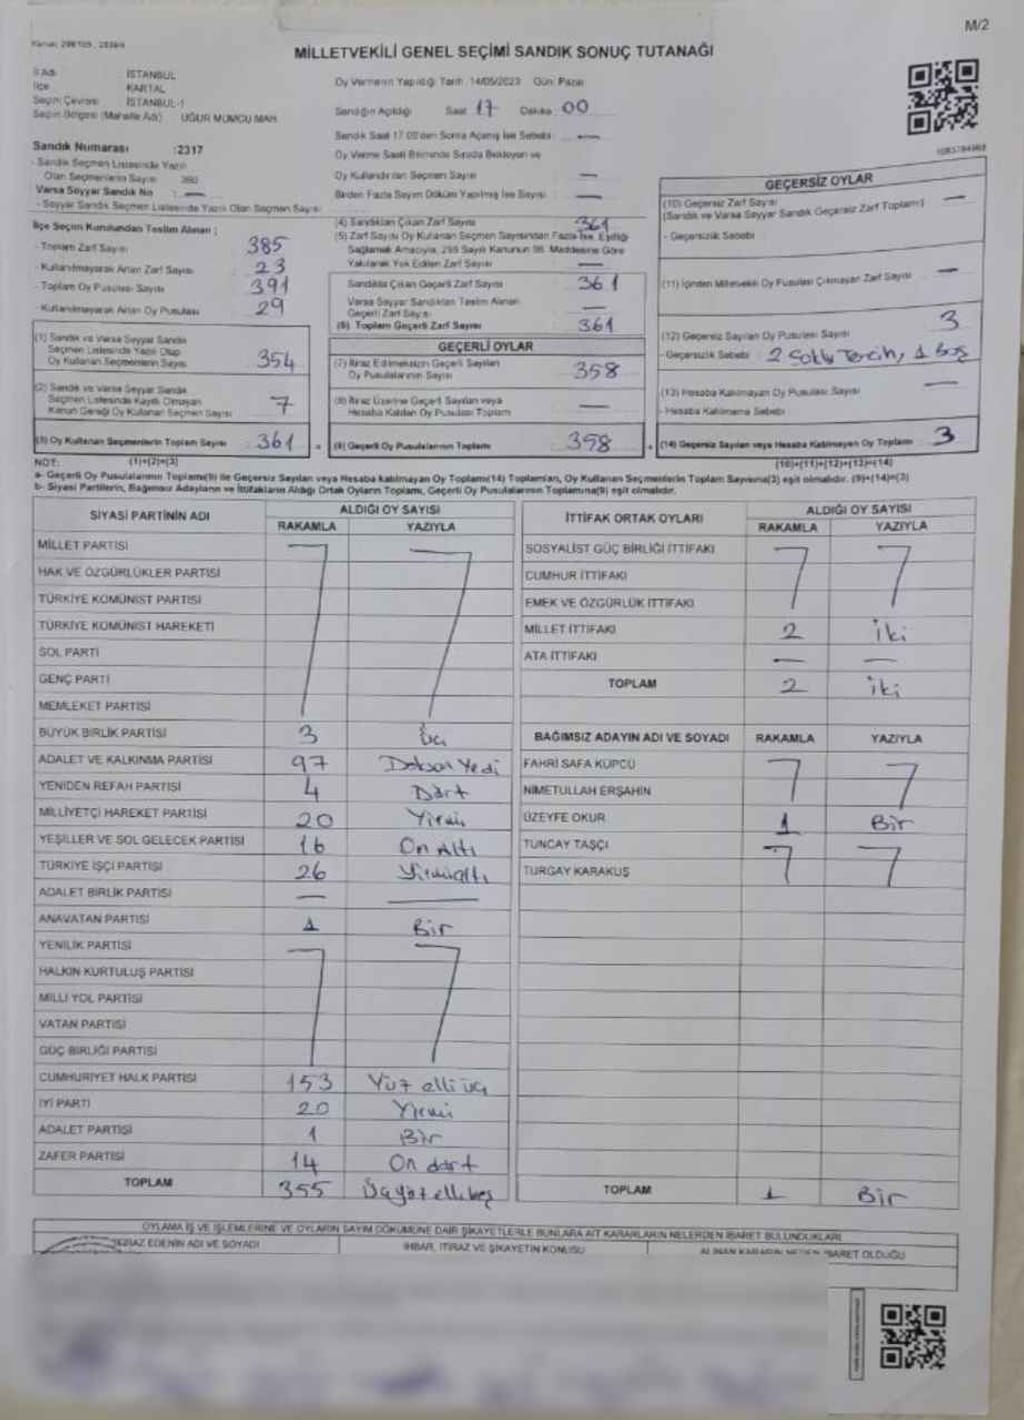 M/2
MİLLETVEKİLİ GENEL SEÇİMİ SANDIK SONUÇ TUTANAĞI
İl Adı İSTANBUL
İlçe KARTAL
Seçim Çevresi İSTANBUL-1
Seçim Bölgesi (Mahalle Adı) UĞUR MUMCU MAH.
Sandık Numarası :2317
- Sandık Seçmen Listesinde Yazılı
Olan Seçmenlerin Sayısı 380
Varsa Seyyar Sandık No : —
- Seyyar Sandık Seçmen Listesinde Yazılı Olan Seçmen Sayısı
İlçe Seçim Kurulundan Teslim Alınan ;
- Toplam Zarf Sayısı 385
- Kullanılmayarak Artan Zarf Sayısı 23
- Toplam Oy Pusulası Sayısı 391
- Kullanılmayarak Artan Oy Pusulası 29
(1) Sandık ve Varsa Seyyar Sandık
Seçmen Listesinde Yazılı Olup
Oy Kullanan Seçmenlerin Sayısı 354
(2) Sandık ve Varsa Seyyar Sandık
Seçmen Listesinde Kayıtlı Olmayan
Kanun Gereği Oy Kullanan Seçmen Sayısı 7
(3) Oy Kullanan Seçmenlerin Toplam Sayısı 361
Oy Vermenin Yapıldığı Tarih :14/05/2023 Gün: Pazar
Sandığın Açıldığı Saat 17 Dakika 00
Sandık Saat 17.00'den Sonra Açılmış İse Sebebi : —
Oy Verme Saati Bitiminde Sırada Bekleyen ve
Oy Kullandırılan Seçmen Sayısı —
Birden Fazla Sayım Döküm Yapılmış İse Sayısı —
(4) Sandıktan Çıkan Zarf Sayısı 361
(5) Zarf Sayısı Oy Kullanan Seçmen Sayısından Fazla İse, Eşitliği
Sağlamak Amacıyla, 298 Sayılı Kanunun 98. Maddesine Göre
Yakılarak Yok Edilen Zarf Sayısı —
Sandıkta Çıkan Geçerli Zarf Sayısı 361
Varsa Seyyar Sandıktan Teslim Alınan
Geçerli Zarf Sayısı —
(6) Toplam Geçerli Zarf Sayısı 361
GEÇERLİ OYLAR
(7) İtiraz Edilmeksizin Geçerli Sayılan
Oy Pusulalarının Sayısı 358
(8) İtiraz Üzerine Geçerli Sayılan veya
Hesaba Katılan Oy Pusulası Toplam —
(9) Geçerli Oy Pusulalarının Toplamı 358
GEÇERSİZ OYLAR
(10) Geçersiz Zarf Sayısı
(Sandık ve Varsa Seyyar Sandık Geçersiz Zarf Toplamı) —
- Geçersizlik Sebebi
(11) İçinden Milletvekili Oy Pusulası Çıkmayan Zarf Sayısı —
(12) Geçersiz Sayılan Oy Pusulası Sayısı 3
- Geçersizlik Sebebi 2 Çoklu Tercih, 1 Boş
(13) Hesaba Katılmayan Oy Pusulası Sayısı —
- Hesaba Katılmama Sebebi
(14) Geçersiz Sayılan veya Hesaba Katılmayan Oy Toplamı 3
NOT: (1)+(2)=(3) (10)+(11)+(12)+(13)=(14)
a- Geçerli Oy Pusulalarının Toplamı(9) ile Geçersiz Sayılan veya Hesaba katılmayan Oy Toplamı(14) Toplamları, Oy Kullanan Seçmenlerin Toplam Sayısına(3) eşit olmalıdır. (9)+(14)=(3)
b- Siyasi Partilerin, Bağımsız Adayların ve İttifakların Aldığı Ortak Oyların Toplamı, Geçerli Oy Pusulalarının Toplamına(9) eşit olmalıdır.
SİYASİ PARTİNİN ADI ALDIĞI OY SAYISI
RAKAMLA YAZIYLA
MİLLET PARTİSİ
HAK VE ÖZGÜRLÜKLER PARTİSİ
TÜRKİYE KOMÜNİST PARTİSİ
TÜRKİYE KOMÜNİST HAREKETİ
SOL PARTİ
GENÇ PARTİ
MEMLEKET PARTİSİ
BÜYÜK BİRLİK PARTİSİ 3 Üç
ADALET VE KALKINMA PARTİSİ 97 Doksan Yedi
YENİDEN REFAH PARTİSİ 4 Dört
MİLLİYETÇİ HAREKET PARTİSİ 20 Yirmi
YEŞİLLER VE SOL GELECEK PARTİSİ 16 On Altı
TÜRKİYE İŞÇİ PARTİSİ 26 Yirmialtı
ADALET BİRLİK PARTİSİ — —
ANAVATAN PARTİSİ 1 Bir
YENİLİK PARTİSİ
HALKIN KURTULUŞ PARTİSİ
MİLLİ YOL PARTİSİ
VATAN PARTİSİ
GÜÇ BİRLİĞİ PARTİSİ
CUMHURİYET HALK PARTİSİ 153 Yüz elli üç
İYİ PARTİ 20 Yirmi
ADALET PARTİSİ 1 Bir
ZAFER PARTİSİ 14 On dört
TOPLAM 355 Üçyüz ellibeş
İTTİFAK ORTAK OYLARI ALDIĞI OY SAYISI
RAKAMLA YAZIYLA
SOSYALİST GÜÇ BİRLİĞİ İTTİFAKI
CUMHUR İTTİFAKI
EMEK VE ÖZGÜRLÜK İTTİFAKI
MİLLET İTTİFAKI 2 İki
ATA İTTİFAKI — —
TOPLAM 2 İki
BAĞIMSIZ ADAYIN ADI VE SOYADI RAKAMLA YAZIYLA
FAHRİ SAFA KÜPCÜ
NİMETULLAH ERŞAHİN
ÜZEYFE OKUR 1 Bir
TUNCAY TAŞÇI
TURGAY KARAKUŞ
TOPLAM 1 Bir
OYLAMA İŞ VE İŞLEMLERİNE VE OYLARIN SAYIM DÖKÜMÜNE DAİR ŞİKAYETLERLE BUNLARA AİT KARARLARIN NELERDEN İBARET BULUNDUKLARI
İTİRAZ EDENİN ADI VE SOYADI İHBAR, İTİRAZ VE ŞİKAYETİN KONUSU ALINAN KARARIN NEDEN İBARET OLDUĞU